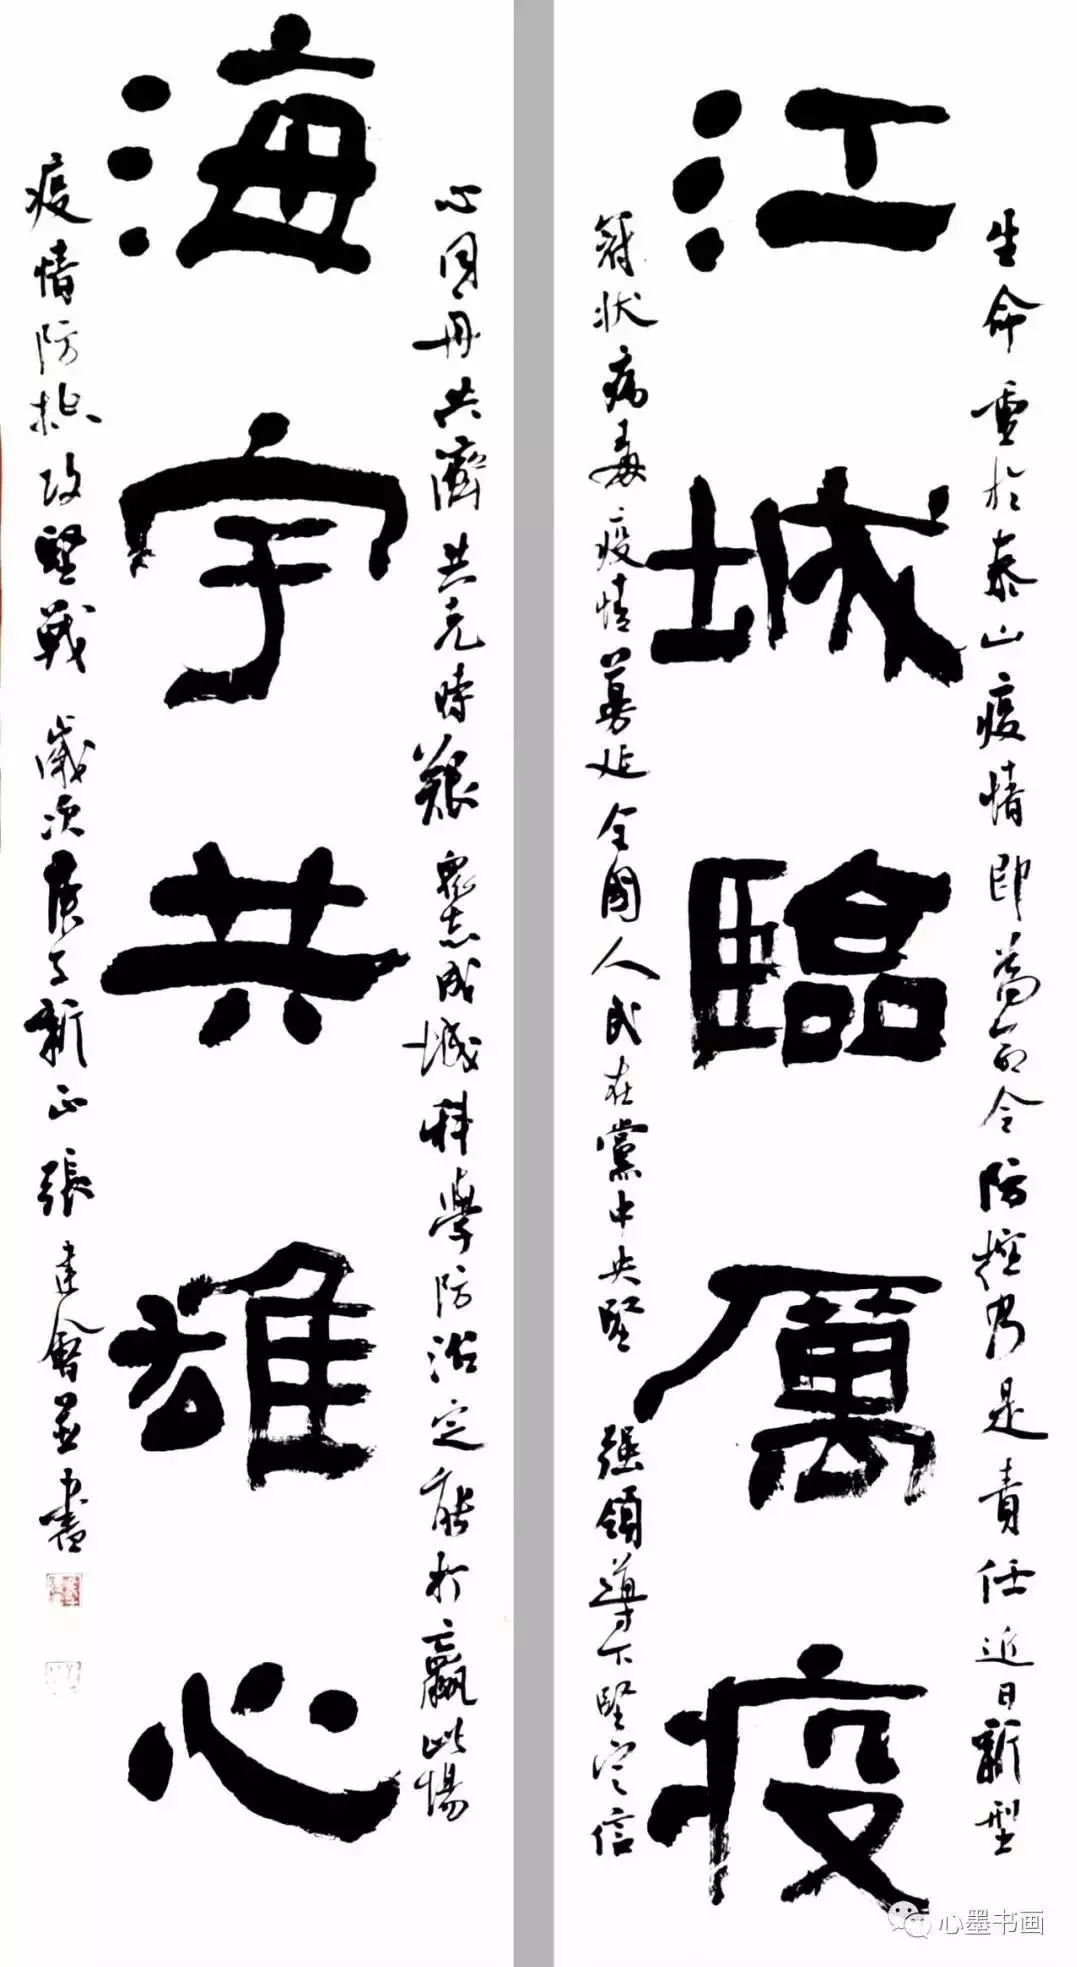 生命重於泰山疫情即為命令防控乃是責任近日新型
江城臨厲疫
冠狀病毒疫情蔓延全國人民在黨中央堅強領導下堅定信
心同舟共濟共克時艱眾志成城科學防治定能打贏此場
海宇共雄心
疫情防控攻堅戰 歲次庚子新正 張建會並書
心墨书画